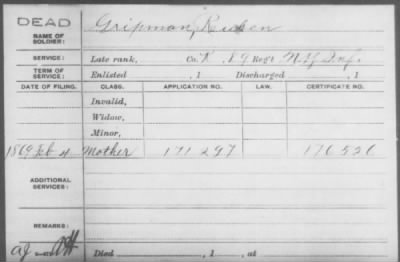 DEAD
NAME OF SOLDIER: Gripman, Reuben
SERVICE: Late rank, Co. K, 89 Reg't N.Y. Inf.
TERM OF SERVICE: Enlisted , 1 Discharged , 1
DATE OF FILING. CLASS. APPLICATION NO. LAW. CERTIFICATE NO.
Invalid,
Widow,
Minor,
1869 Feb 4 Mother 171297 176526
ADDITIONAL SERVICES:
REMARKS:
Died , 1 , at